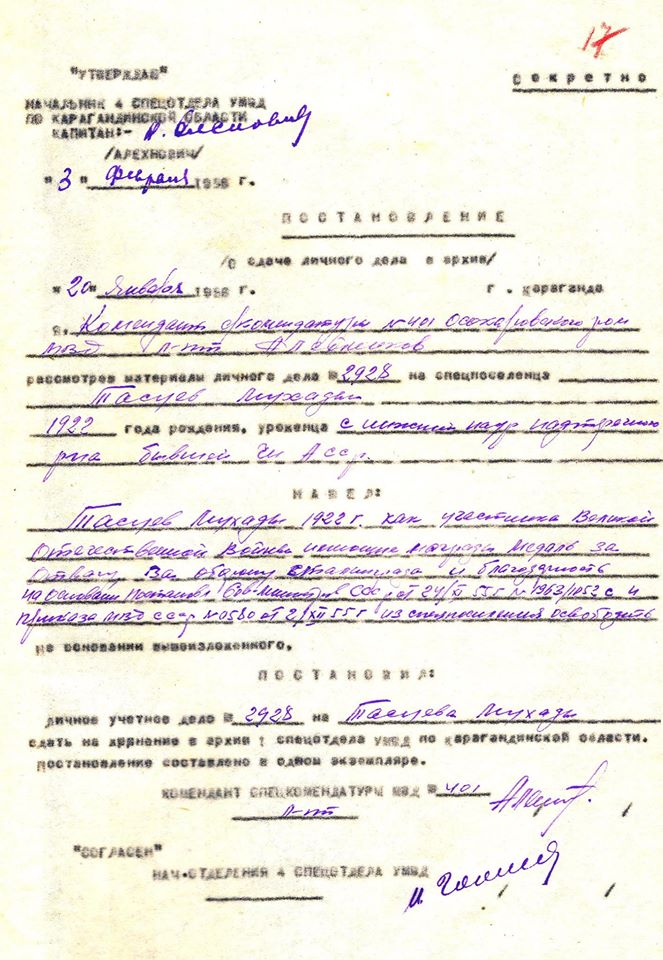 17
"УТВЕРЖДАЮ"
Секретно
НАЧАЛЬНИК 4 СПЕЦОТДЕЛА УМВД
ПО КАРАГАНДИНСКОЙ ОБЛАСТИ
КАПИТАН:-
/АЛЕХНОВИЧ/
"3" февраля 1956 г.
ПОСТАНОВЛЕНИЕ
/О сдаче личного дела в архив/
"20" января 1956 г. г. Караганда
Я, Комендант спкомендатуры №401 Осокаровского ром
мвд л-нт
рассмотрев материалы личного дела № 2928 на спецпоселенца
Тасуев Мухады
1922 года рождения, уроженца с нижний наур надтеречного
р-на бывшей чи Асср.
НАШЕЛ:
Тасуев Мухады 1922 г. как участника Великой
Отечественной Войны имеющие награды Медаль за
Отвагу, За оборону Сталинграда и благодарность
на основании Постанов. Сов-министров СССР от 24/XI 55 г №1963/1052 с и
приказа МВД СССР №0580 от 2/XII 55 г из спецпоселения освободить
На основании вышеизложенного,
ПОСТАНОВИЛ:
личное учетное дело № 2928 на Тасуева Мухады
сдать на хррнение в архив 1 спецотдела УМВД по Карагандинской области.
Постановление составлено в одном экземпляре.
КОМЕНДАНТ СПЕЦКОМЕНДАТУРЫ МВД № 401
л-нт
"СОГЛАСЕН"
НАЧ.ОТДЕЛЕНИЯ 4 СПЕЦОТДЕЛА УМВД